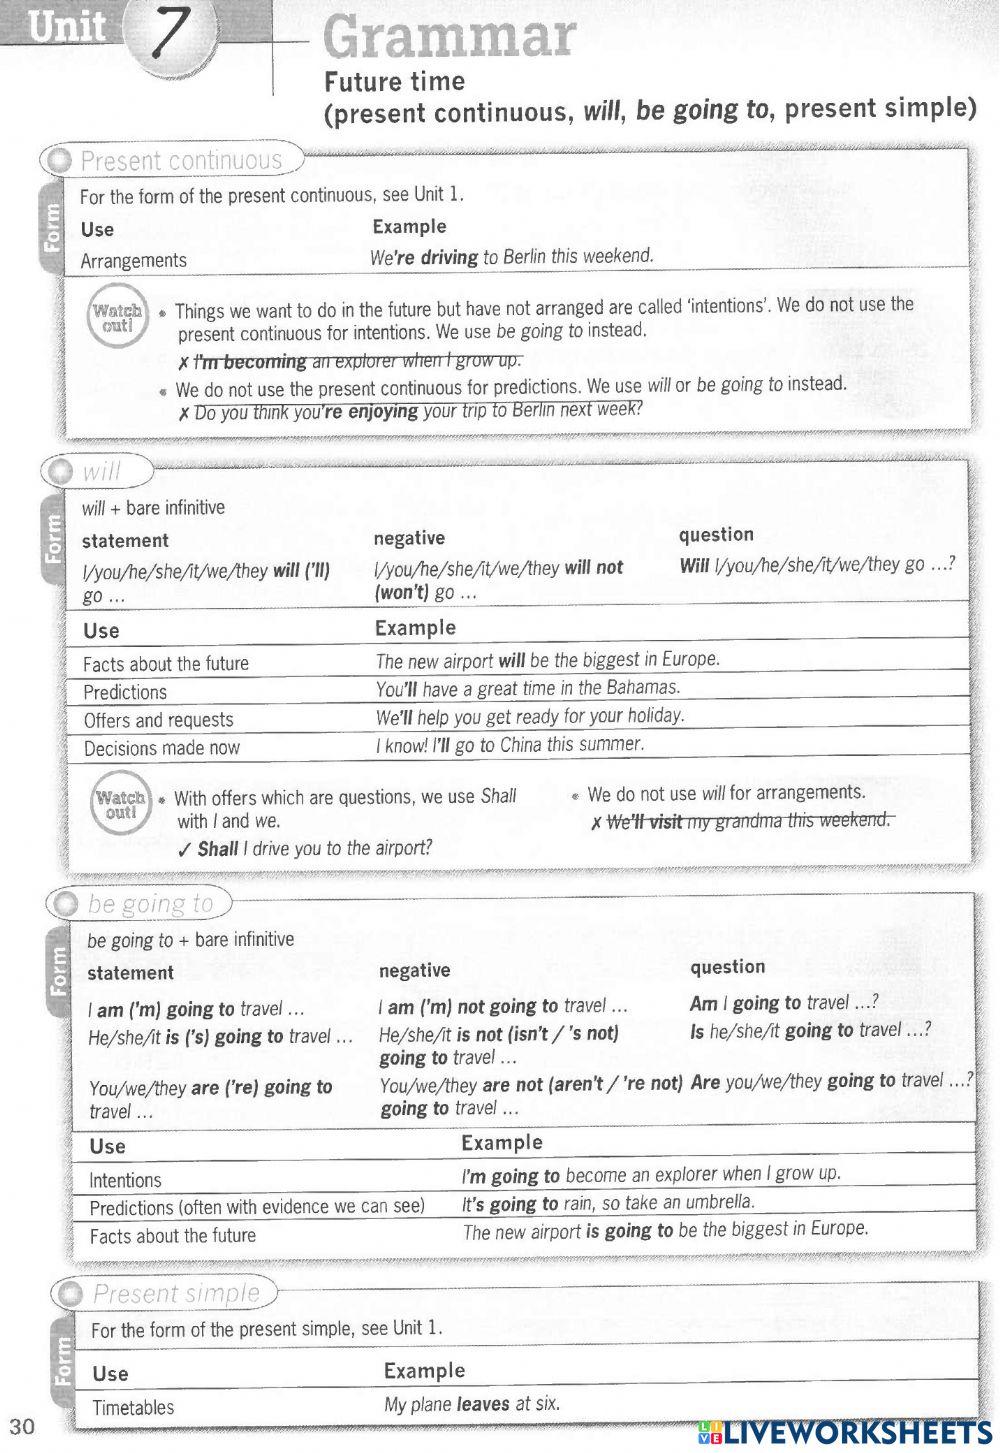 Unit 7
Grammar
Future time
(present continuous, will, be going to, present simple)
Present continuous
Form
For the form of the present continuous, see Unit 1.
Use Example
Arrangements We're driving to Berlin this weekend.
Watch out!
• Things we want to do in the future but have not arranged are called 'intentions'. We do not use the
present continuous for intentions. We use be going to instead.
✗ I'm becoming an explorer when I grow up.
• We do not use the present continuous for predictions. We use will or be going to instead.
✗ Do you think you're enjoying your trip to Berlin next week?
will
Form
will + bare infinitive
statement negative question
I/you/he/she/it/we/they will ('ll) I/you/he/she/it/we/they will not Will I/you/he/she/it/we/they go ...?
go ... (won't) go ...
Use Example
Facts about the future The new airport will be the biggest in Europe.
Predictions You'll have a great time in the Bahamas.
Offers and requests We'll help you get ready for your holiday.
Decisions made now I know! I'll go to China this summer.
Watch out!
• With offers which are questions, we use Shall
with I and we.
✓ Shall I drive you to the airport?
• We do not use will for arrangements.
✗ We'll visit my grandma this weekend.
be going to
Form
be going to + bare infinitive
statement negative question
I am ('m) going to travel ... I am ('m) not going to travel ... Am I going to travel ...?
He/she/it is ('s) going to travel ... He/she/it is not (isn't / 's not) Is he/she/it going to travel ...?
going to travel ...
You/we/they are ('re) going to You/we/they are not (aren't / 're not) Are you/we/they going to travel ...?
travel ... going to travel ...
Use Example
Intentions I'm going to become an explorer when I grow up.
Predictions (often with evidence we can see) It's going to rain, so take an umbrella.
Facts about the future The new airport is going to be the biggest in Europe.
Present simple
Form
For the form of the present simple, see Unit 1.
Use Example
Timetables My plane leaves at six.
30
LIVE LIVEWORKSHEETS